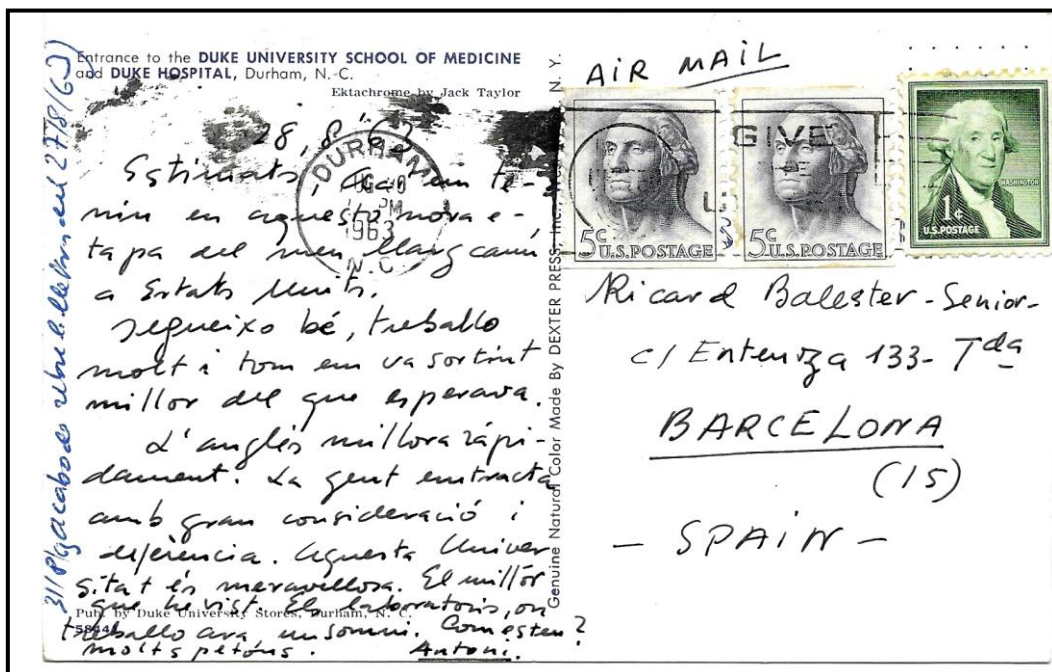 Entrance to the DUKE UNIVERSITY SCHOOL OF MEDICINE
and DUKE HOSPITAL, Durham, N. C.
Ektachrome by Jack Taylor
28,8,'63
Estimats,
nin en aquesta nova e-
tapa del meu llarg camí
a Estats Units.
Segueixo bé, treballo
molt i tom em va sortint
millor del que esperava.
L'anglès millora ràpi-
dament. La gent em tracta
amb gran consideració i
deferència. Aquesta Univer
sitat és meravellosa. El millor
que he vist. El laboratoris, on
treballo ara, un somni. Com esteu?
molts petons. Antoni.
Pub. by Duke University Stores, Durham, N. C.
Genuine Natural Color Made By DEXTER PRESS, Inc. N. Y.
AIR MAIL
DURHAM
PM
1963
N.C.
GIVE
5c
U.S.POSTAGE
5c
U.S.POSTAGE
WASHINGTON
1c
U.S.POSTAGE
Ricard Balester-Senior-
c/ Entenza 133- 7da
BARCELONA
(15)
- SPAIN -
del 27/8/63)